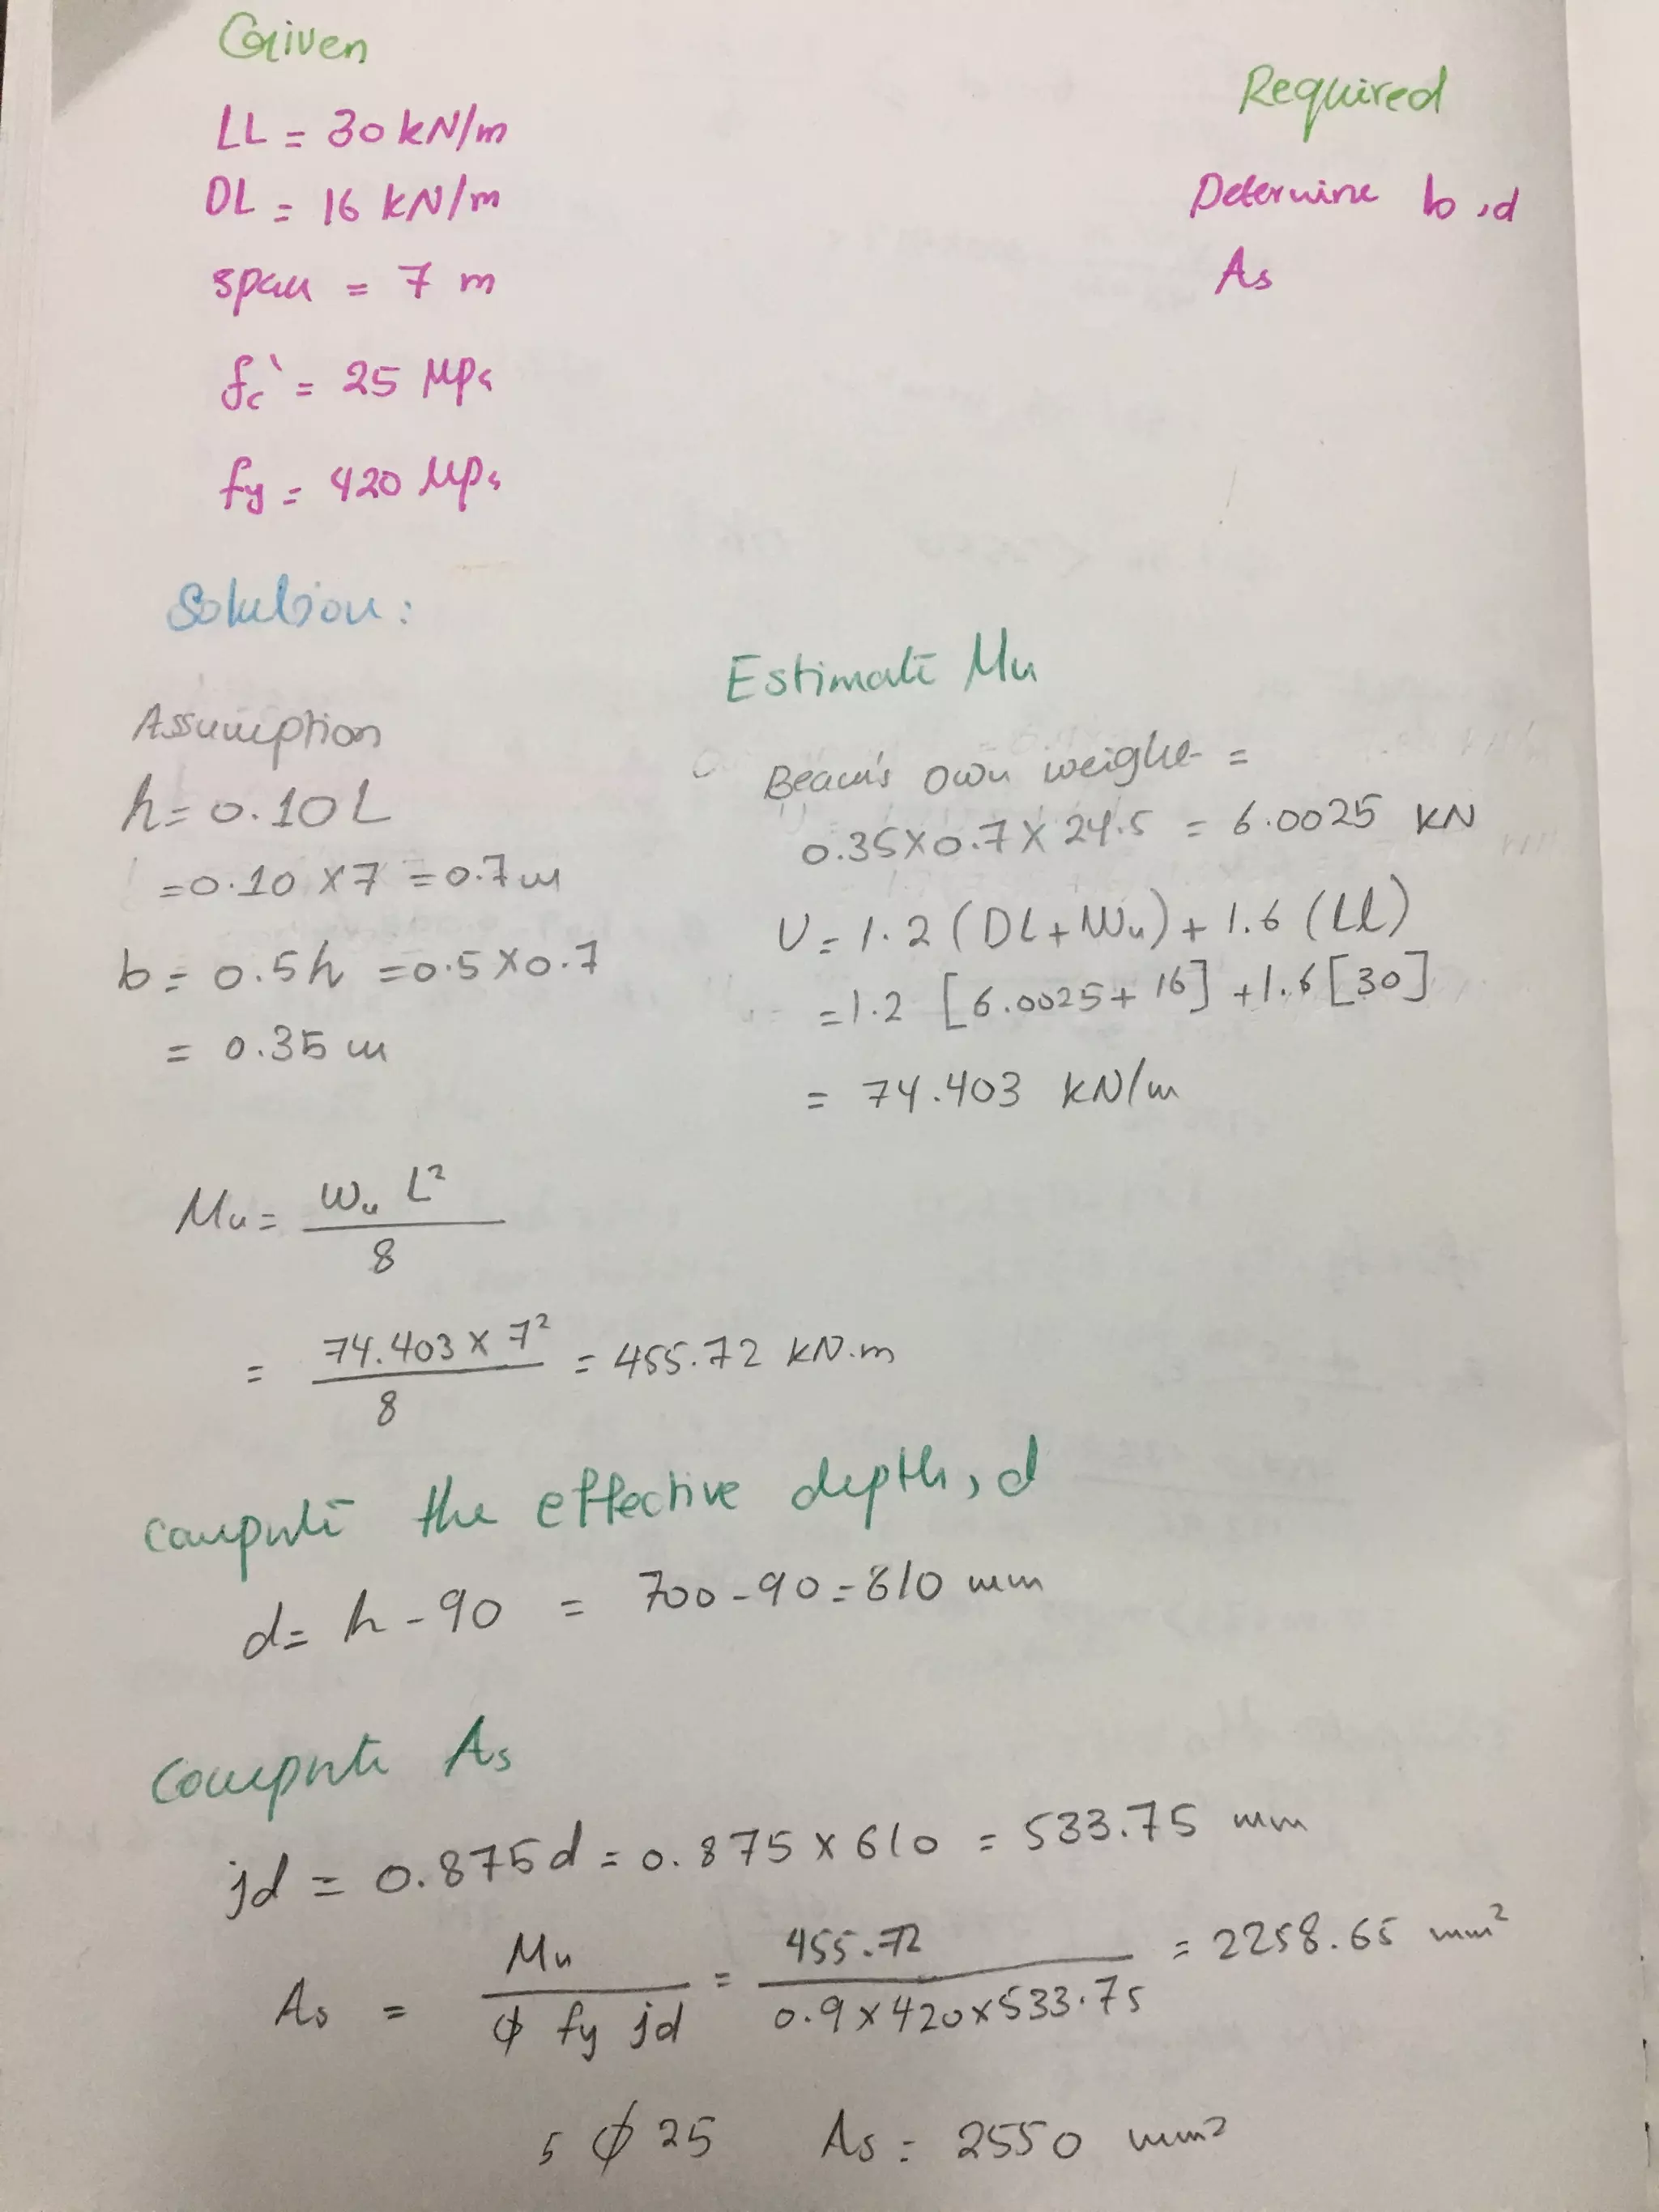 Given
LL = 30 kN/m
DL = 16 kN/m
span = 7 m
fc' = 25 MPa
fy = 420 MPa
Required
Determine b,d
As
Solution:
Assumption
h = 0.10L
= 0.10 × 7 = 0.7 m
b = 0.5h = 0.5 × 0.7
= 0.35 m
Estimate Mu
Beam's own weight =
0.35 × 0.7 × 24.5 = 6.0025 KN
U = 1.2 (DL + Wu) + 1.6 (Ll)
= 1.2 [6.0025 + 16] + 1.6 [30]
= 74.403 kN/m
Mu = wu L² / 8
= 74.403 × 7² / 8 = 455.72 kN.m
Compute the effective depth, d
d = h - 90 = 700 - 90 = 610 mm
Compute As
jd = 0.875d = 0.875 × 610 = 533.75 mm
As = Mu / ϕ fy jd = 455.72 / 0.9 × 420 × 533.75 = 2258.65 mm²
5 ϕ 25 As = 2550 mm²